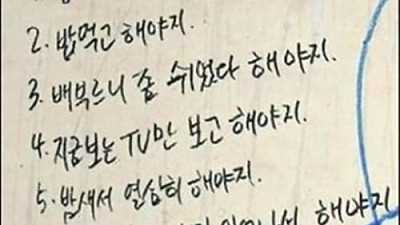 2. 밥먹고 해야지.
3. 배부르니 좀 쉬었다 해야지.
4. 지금보는 TV만 보고 해야지.
5. 밤새서 열심히 해야지.
해야지